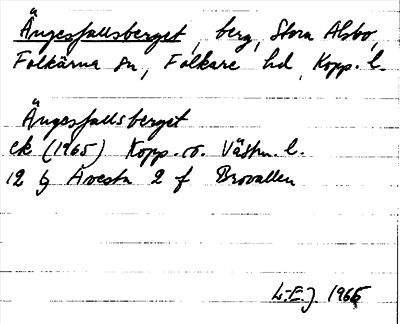 Ängesfallsberget, berg, Stora Alsbo,
Folkärna sn, Folkare hd, Kopp. l.
Ängesfallsberget
ek (1965) Kopp. o. Västm. l.
12 G Avesta 2 f Brovallen
L-E.J 1965